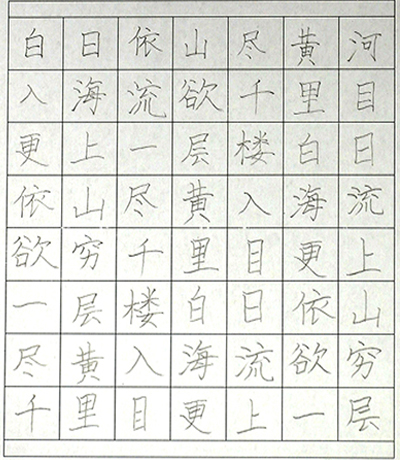 白日依山尽黄河
入海流欲千里目
更上一层楼白日
依山尽黄入海流
欲穷千里目更上
一层楼白日依山
尽黄入海流欲穷
千里目更上一层